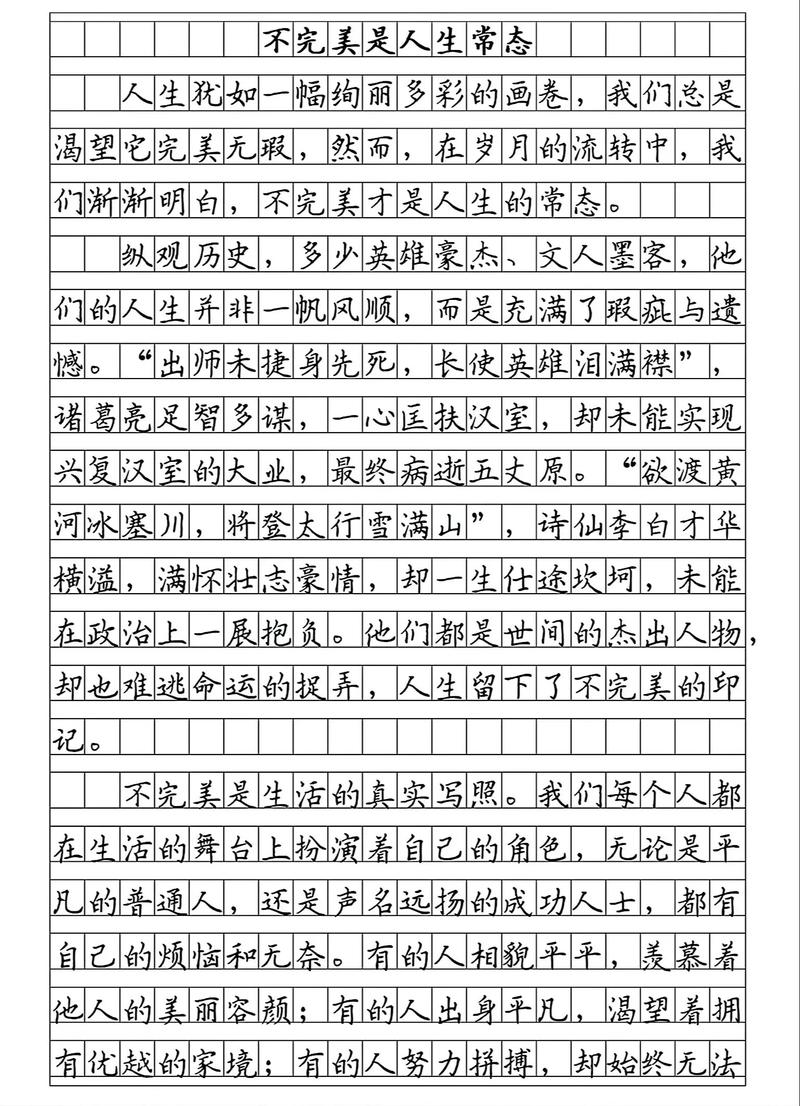 不完美是人生常态
人生犹如一幅绚丽多彩的画卷，我们总是
渴望它完美无瑕，然而，在岁月的流转中，我
们渐渐明白，不完美才是人生的常态。
纵观历史，多少英雄豪杰、文人墨客，他
们的人生并非一帆风顺，而是充满了瑕疵与遗
憾。“出师未捷身先死，长使英雄泪满襟”，
诸葛亮足智多谋，一心匡扶汉室，却未能实现
兴复汉室的大业，最终病逝五丈原。“欲渡黄
河冰塞川，将登太行雪满山”，诗仙李白才华
横溢，满怀壮志豪情，却一生仕途坎坷，未能
在政治上一展抱负。他们都是世间的杰出人物，
却也难逃命运的捉弄，人生留下了不完美的印
记。
不完美是生活的真实写照。我们每个人都
在生活的舞台上扮演着自己的角色，无论是平
凡的普通人，还是声名远扬的成功人士，都有
自己的烦恼和无奈。有的人相貌平平，羡慕着
他人的美丽容颜；有的人出身平凡，渴望着拥
有优越的家境；有的人努力拼搏，却始终无法